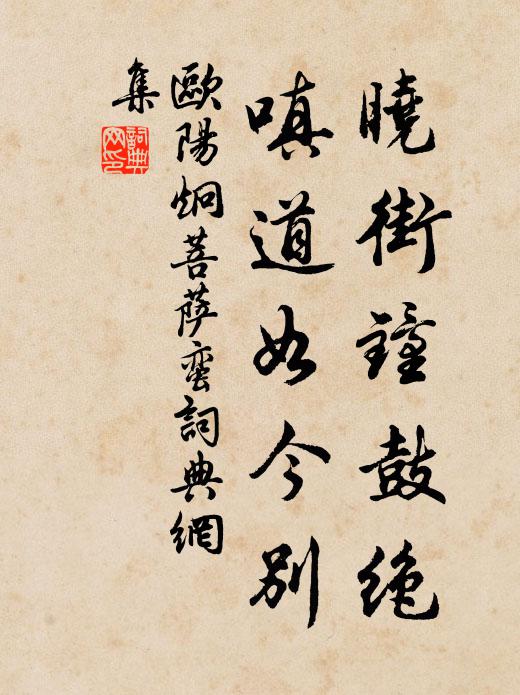 曉街鐘鼓絶
嗔道如今別
歐陽炯菩薩蛮詞典網
集
詞典网印